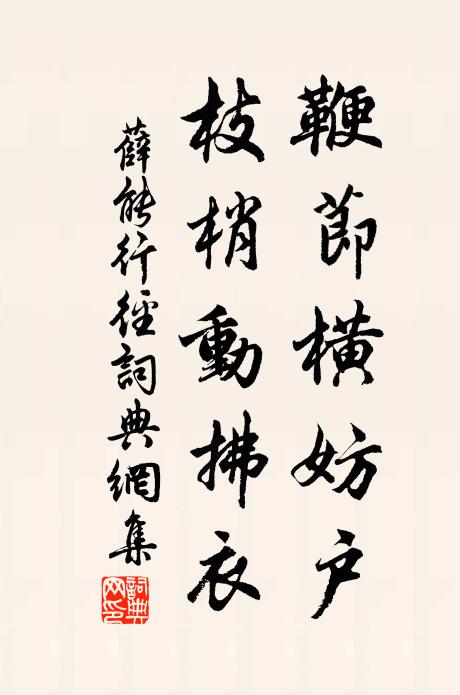 鞭節橫妨户
枝梢動拂衣
薛能行徑詞典網集
詞典网印